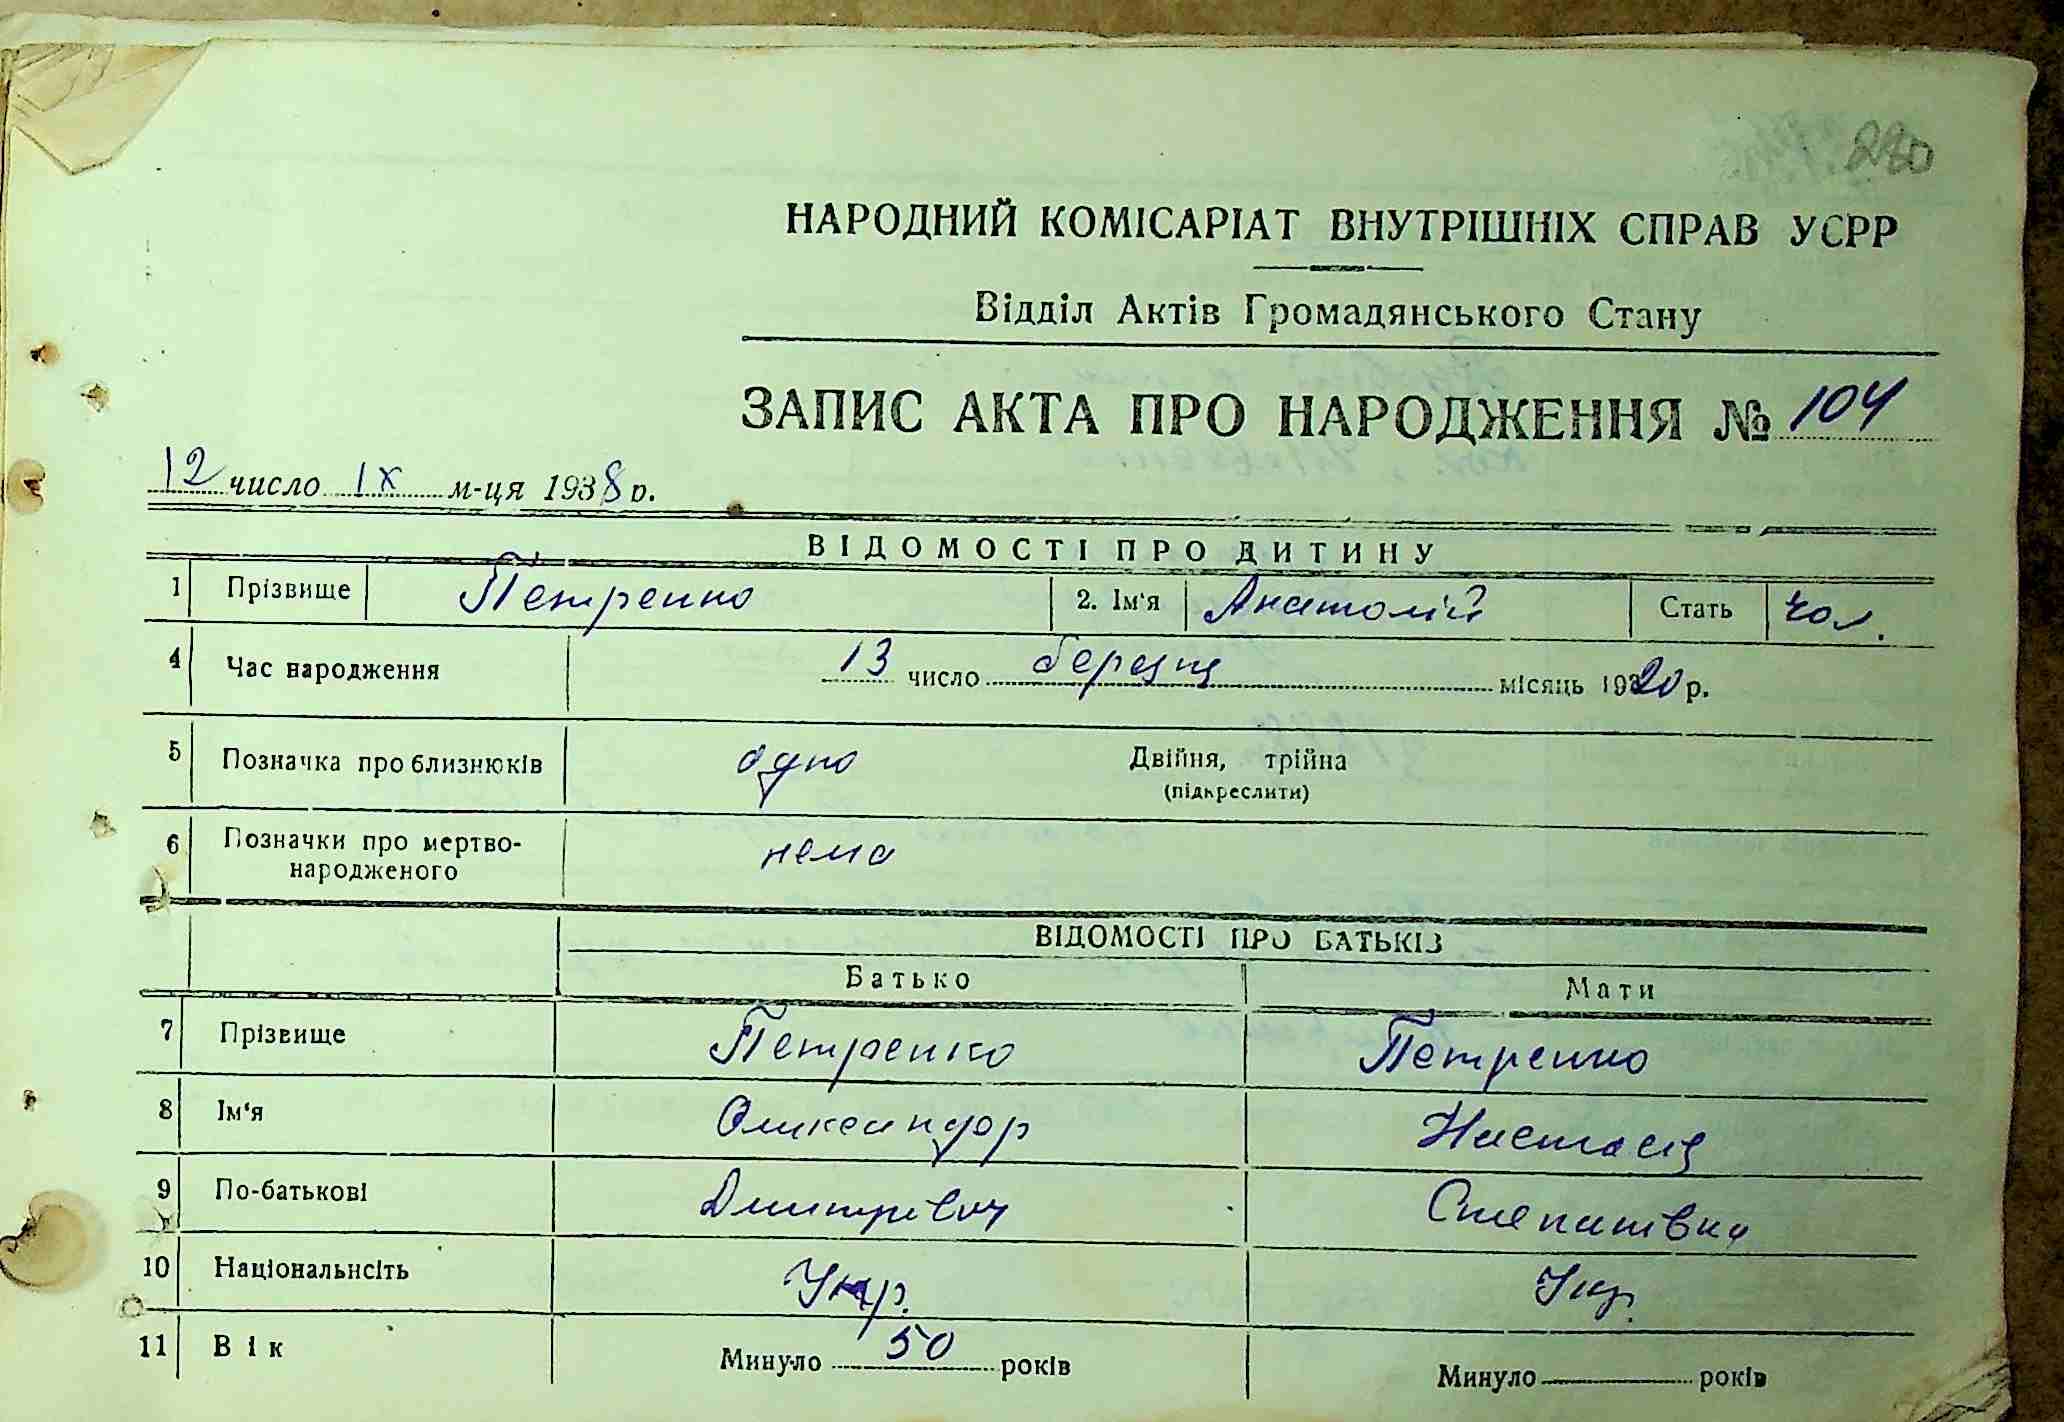 280
НАРОДНИЙ КОМІСАРІАТ ВНУТРІШНІХ СПРАВ УСРР
Відділ Актів Громадянського Стану
ЗАПИС АКТА ПРО НАРОДЖЕННЯ № 104
12 число IX м-ця 1938 р.
ВІДОМОСТІ ПРО ДИТИНУ
1 Прізвище Петренко 2. Ім'я Анатолій Стать чол.
4 Час народження 13 число березня місяць 1920 р.
5 Позначка про близнюків одно Двійня, трійна
(підкреслити)
6 Позначки про мертво-
народженого нема
ВІДОМОСТІ ПРО БАТЬКІВ
Батько Мати
7 Прізвище Петренко Петренко
8 Ім'я Олександор Настасія
9 По-батькові Дмитрівич Степанівна
10 Національнсіть Укр. Укр.
11 Вік Минуло 50 років Минуло років